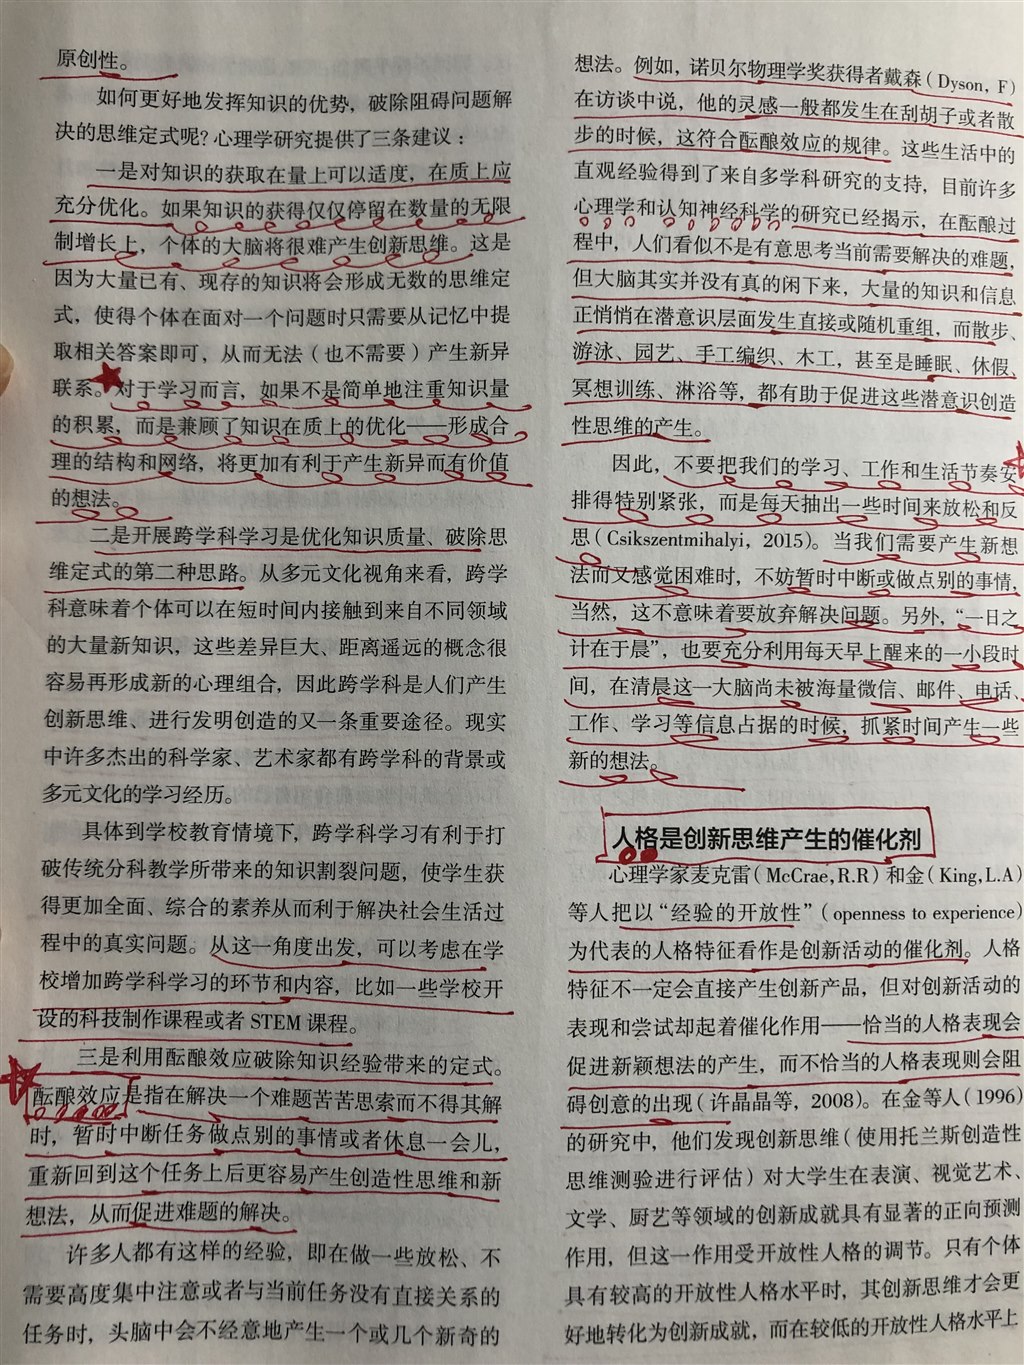 原创性。
如何更好地发挥知识的优势，破除阻碍问题解
决的思维定式呢？心理学研究提供了三条建议：
一是对知识的获取在量上可以适度，在质上应
充分优化。如果知识的获得仅仅停留在数量的无限
制增长上，个体的大脑将很难产生创新思维。这是
因为大量已有、现存的知识将会形成无数的思维定
式，使得个体在面对一个问题时只需要从记忆中提
取相关答案即可，从而无法（也不需要）产生新异
联系。对于学习而言，如果不是简单地注重知识量
的积累，而是兼顾了知识在质上的优化——形成合
理的结构和网络，将更加有利于产生新异而有价值
的想法。
二是开展跨学科学习是优化知识质量、破除思
维定式的第二种思路。从多元文化视角来看，跨学
科意味着个体可以在短时间内接触到来自不同领域
的大量新知识，这些差异巨大、距离遥远的概念很
容易再形成新的心理组合，因此跨学科是人们产生
创新思维、进行发明创造的又一条重要途径。现实
中许多杰出的科学家、艺术家都有跨学科的背景或
多元文化的学习经历。
具体到学校教育情境下，跨学科学习有利于打
破传统分科教学所带来的知识割裂问题，使学生获
得更加全面、综合的素养从而利于解决社会生活过
程中的真实问题。从这一角度出发，可以考虑在学
校增加跨学科学习的环节和内容，比如一些学校开
设的科技制作课程或者 STEM 课程。
三是利用酝酿效应破除知识经验带来的定式。
酝酿效应是指在解决一个难题苦苦思索而不得其解
时，暂时中断任务做点别的事情或者休息一会儿，
重新回到这个任务上后更容易产生创造性思维和新
想法，从而促进难题的解决。
许多人都有这样的经验，即在做一些放松、不
需要高度集中注意或者与当前任务没有直接关系的
任务时，头脑中会不经意地产生一个或几个新奇的
想法。例如，诺贝尔物理学奖获得者戴森（Dyson, F）
在访谈中说，他的灵感一般都发生在刮胡子或者散
步的时候，这符合酝酿效应的规律。这些生活中的
直观经验得到了来自多学科研究的支持，目前许多
心理学和认知神经科学的研究已经揭示，在酝酿过
程中，人们看似不是有意思考当前需要解决的难题，
但大脑其实并没有真的闲下来，大量的知识和信息
正悄悄在潜意识层面发生直接或随机重组，而散步、
游泳、园艺、手工编织、木工，甚至是睡眠、休假、
冥想训练、淋浴等，都有助于促进这些潜意识创造
性思维的产生。
因此，不要把我们的学习、工作和生活节奏安
排得特别紧张，而是每天抽出一些时间来放松和反
思（Csikszentmihalyi, 2015）。当我们需要产生新想
法而又感觉困难时，不妨暂时中断或做点别的事情，
当然，这不意味着要放弃解决问题。另外，“一日之
计在于晨”，也要充分利用每天早上醒来的一小段时
间，在清晨这一大脑尚未被海量微信、邮件、电话、
工作、学习等信息占据的时候，抓紧时间产生一些
新的想法。
人格是创新思维产生的催化剂
心理学家麦克雷（McCrae,R.R）和金（King,L.A）
等人把以“经验的开放性”（openness to experience）
为代表的人格特征看作是创新活动的催化剂。人格
特征不一定会直接产生创新产品，但对创新活动的
表现和尝试却起着催化作用——恰当的人格表现会
促进新颖想法的产生，而不恰当的人格表现则会阻
碍创意的出现（许晶晶等，2008）。在金等人（1996）
的研究中，他们发现创新思维（使用托兰斯创造性
思维测验进行评估）对大学生在表演、视觉艺术、
文学、厨艺等领域的创新成就具有显著的正向预测
作用，但这一作用受开放性人格的调节。只有个体
具有较高的开放性人格水平时，其创新思维才会更
好地转化为创新成就，而在较低的开放性人格水平上